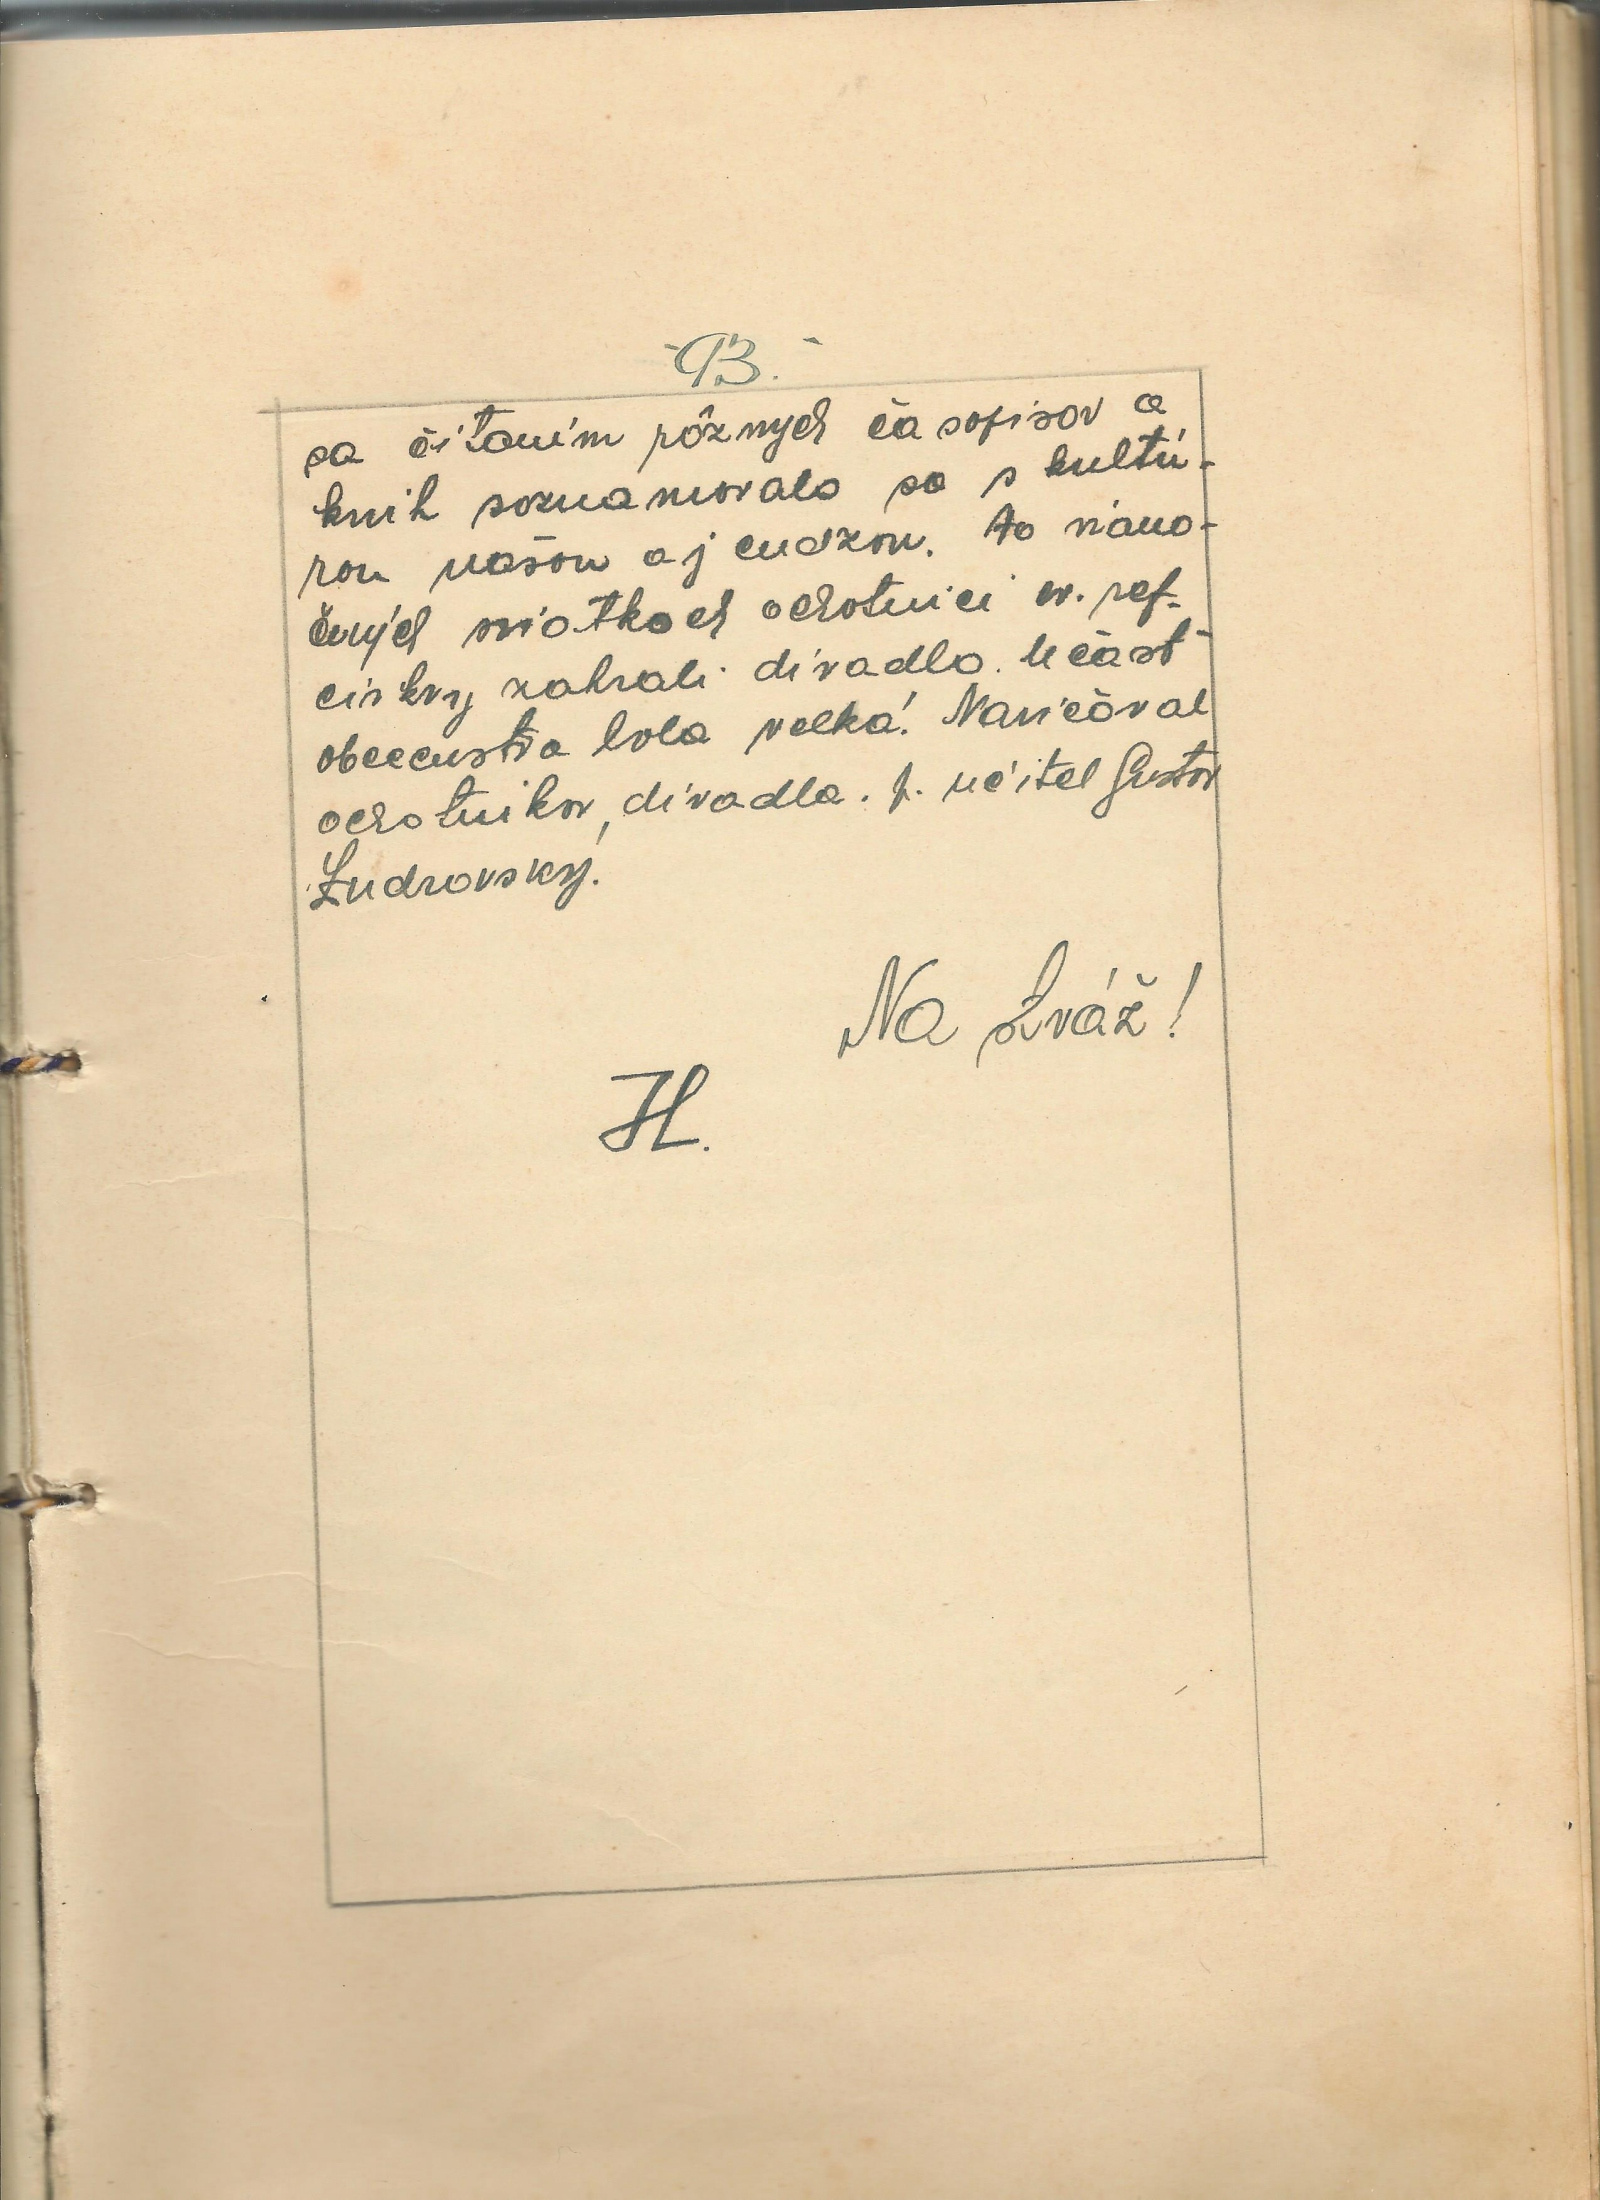 -93.-
sa čítaním rôznych časopisov a
knih soznamovalo sa s kultú-
rou našou aj cudzou. Po viano-
čných sviatkoch ochotníci ev. ref.
cirkvy zahrali divadlo. Účasť
obecenstva bola velká! Nacvičoval
ochotnikov, divadla. p. učitel Gustav
Ludrovský.
Na Stráž!
H.